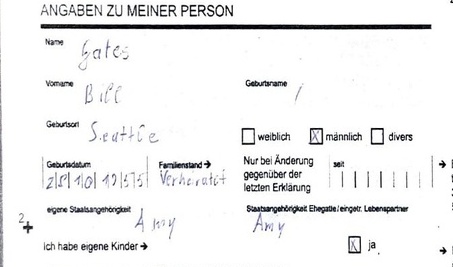 ANGABEN ZU MEINER PERSON
Name
Gates
Vorname Geburtsname
Bill /
Geburtsort
Seattle
weiblich X männlich divers
Geburtsdatum Familienstand → Nur bei Änderung gegenüber der letzten Erklärung seit →
Verheiratet
eigene Staatsangehörigkeit Staatsangehörigkeit Ehegatte/eingetr. Lebenspartner
2 Amy Amy
Ich habe eigene Kinder → X ja